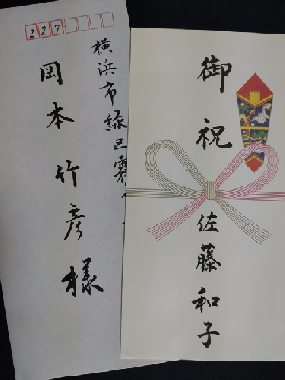 227
横浜市緑区霧
岡本竹彦様
御祝
佐藤和子